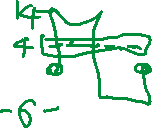 14
4
-6-